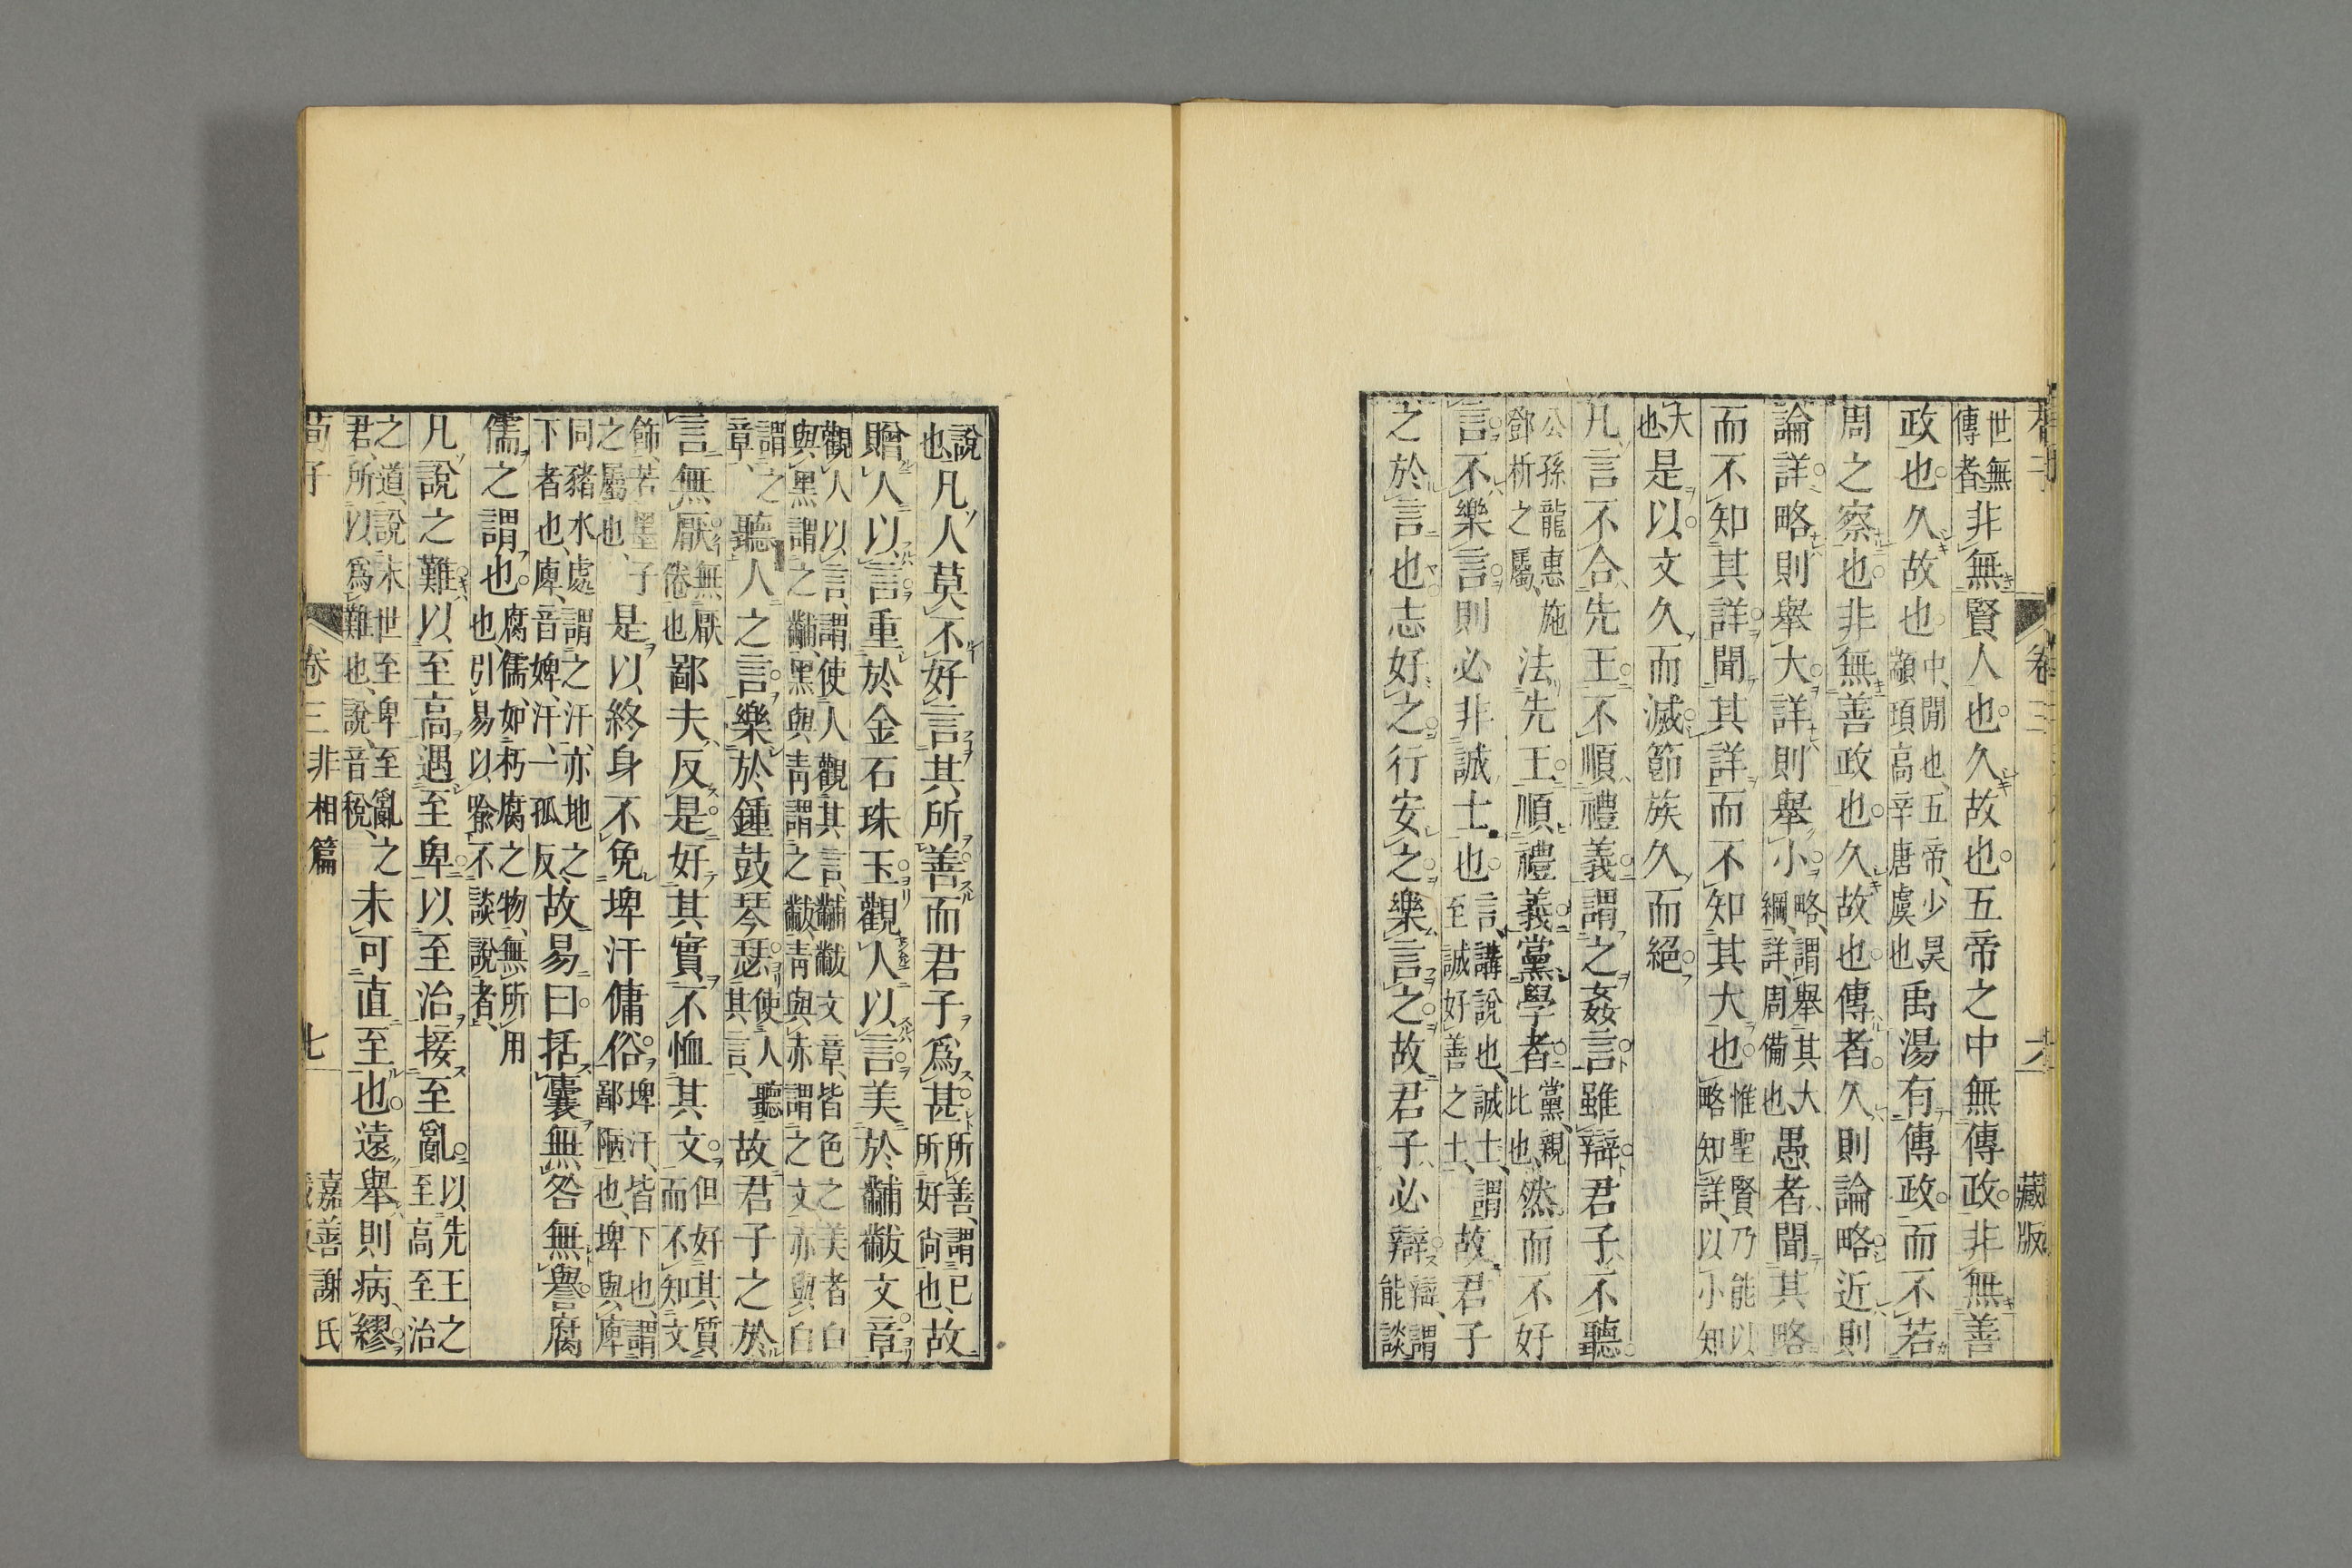 世無傳者非無賢人也久故也五帝之中無傳政非無善
政也久故也中閒也五帝少昊顓頊高辛唐虞也禹湯有傳政而不若
周之察也非無善政也久故也傳者久則論略近則
論詳略則舉大詳則舉小略謂舉其大綱詳周備也愚者聞其略
而不知其詳聞其詳而不知其大也惟聖賢乃能以略知詳以小知
大也是以文久而滅節族久而絕
凡言不合先王不順禮義謂之姦言雖辯君子不聽
公孫龍惠施鄧析之屬法先王順禮義黨學者黨親比也然而不好
言不樂言則必非誠士也言講說也誠士謂至誠好善之士故君子
之於言也志好之行安之樂言之故君子必辯辯謂能談
說也凡人莫不好言其所善而君子爲甚所善謂己所好尙也故
贈人以言重於金石珠玉觀人以言美於黼黻文章
觀人以言謂使人觀其言黼黻文章皆色之美者白與黑謂之黼黑與靑謂之黻靑與赤謂之文赤與白
謂之章聽人之言樂於鍾鼓琴瑟使人聽其言故君子之於
言無厭無厭倦也鄙夫反是好其實不恤其文但好其質而不知文
飾若墨子之屬也是以終身不免埤汙傭俗埤汙皆下也謂鄙陋也埤與庳
同豬水處謂之汙亦地之下者也庳音婢汙一孤反故易曰括囊無咎無譽腐
儒之謂也腐儒如朽腐之物無所用也引易以喩不談說者
凡說之難以至高遇至卑以至治接至亂以先王之至高至治
之道說末世至卑至亂之君所以爲難也說音稅未可直至也遠舉則病繆
卷三
六
藏版
荀子
卷三
非相篇
七
嘉善謝氏